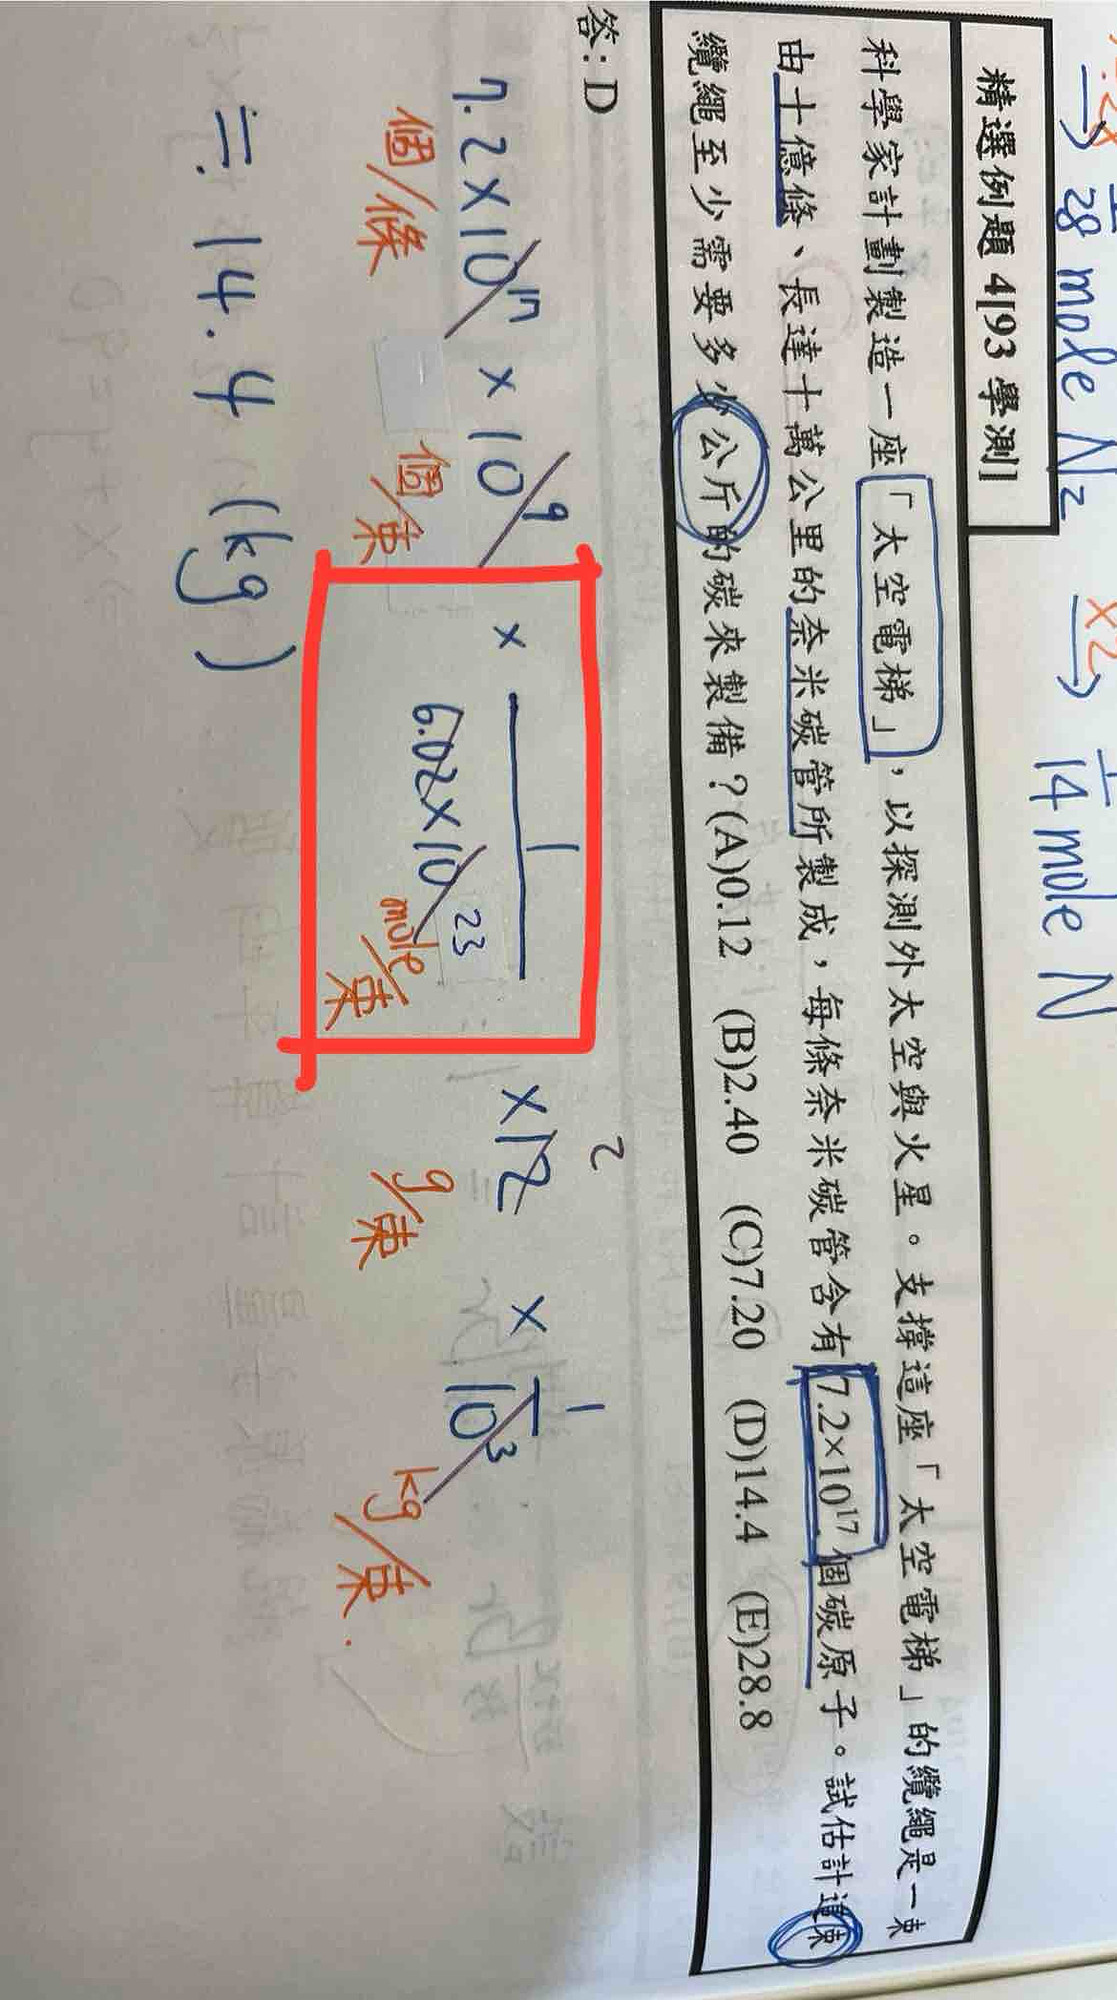 28 mole N₂ ×2→ 14 mole N
精選例題 4[93 學測]
科學家計劃製造一座「太空電梯」,以探測外太空與火星。支撐這座「太空電梯」的纜繩是一束
由十億條、長達十萬公里的奈米碳管所製成,每條奈米碳管含有 7.2×10¹⁷ 個碳原子。試估計這束
纜繩至少需要多少公斤的碳來製備?(A)0.12 (B)2.40 (C)7.20 (D)14.4 (E)28.8
答:D
2
7.2×10¹⁷ × 10⁹ × 1/6.02×10²³ ×12 × 1/10³
個/條 個/束 mole/束 g/束 kg/束.
≒ 14.4 (kg)